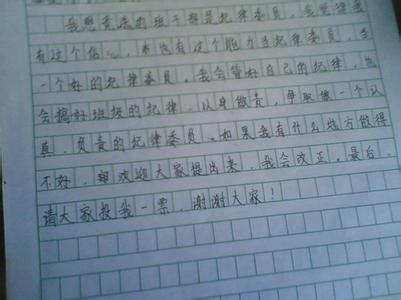 我想竞选的班干部是纪律委员，我觉得我
有这个信心，也有这个能力当纪律委员，当
一个好的纪律委员，我会管好自己的纪律，也
会搞好班级的纪律，以身做责，争取做一个认
真，负责的纪律委员。如果我有什么地方做得
不好，欢迎大家提出来，我会改正，最后，
请大家投我一票，谢谢大家！